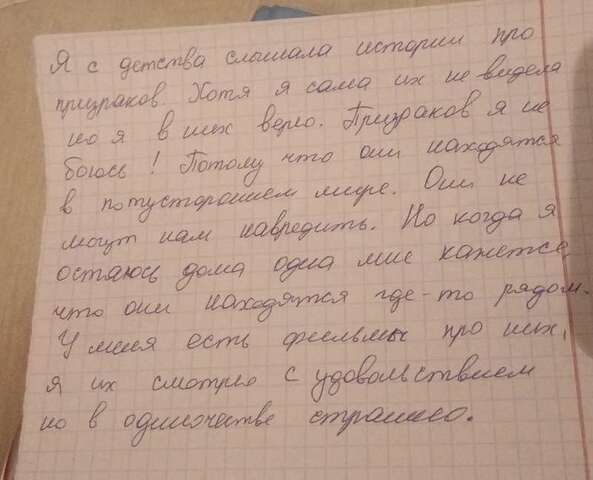 Я с детства слышала истории про
призраков. Хотя я сама их не видела
но я в них верю. Призраков я не
боюсь! Потому что они находятся
в потустороннем мире. Они не
могут нам навредить. Но когда я
остаюсь дома одна мне кажется,
что они находятся где-то рядом.
У меня есть фильмы про них,
я их смотрю с удовольствием
но в одиночестве страшно.